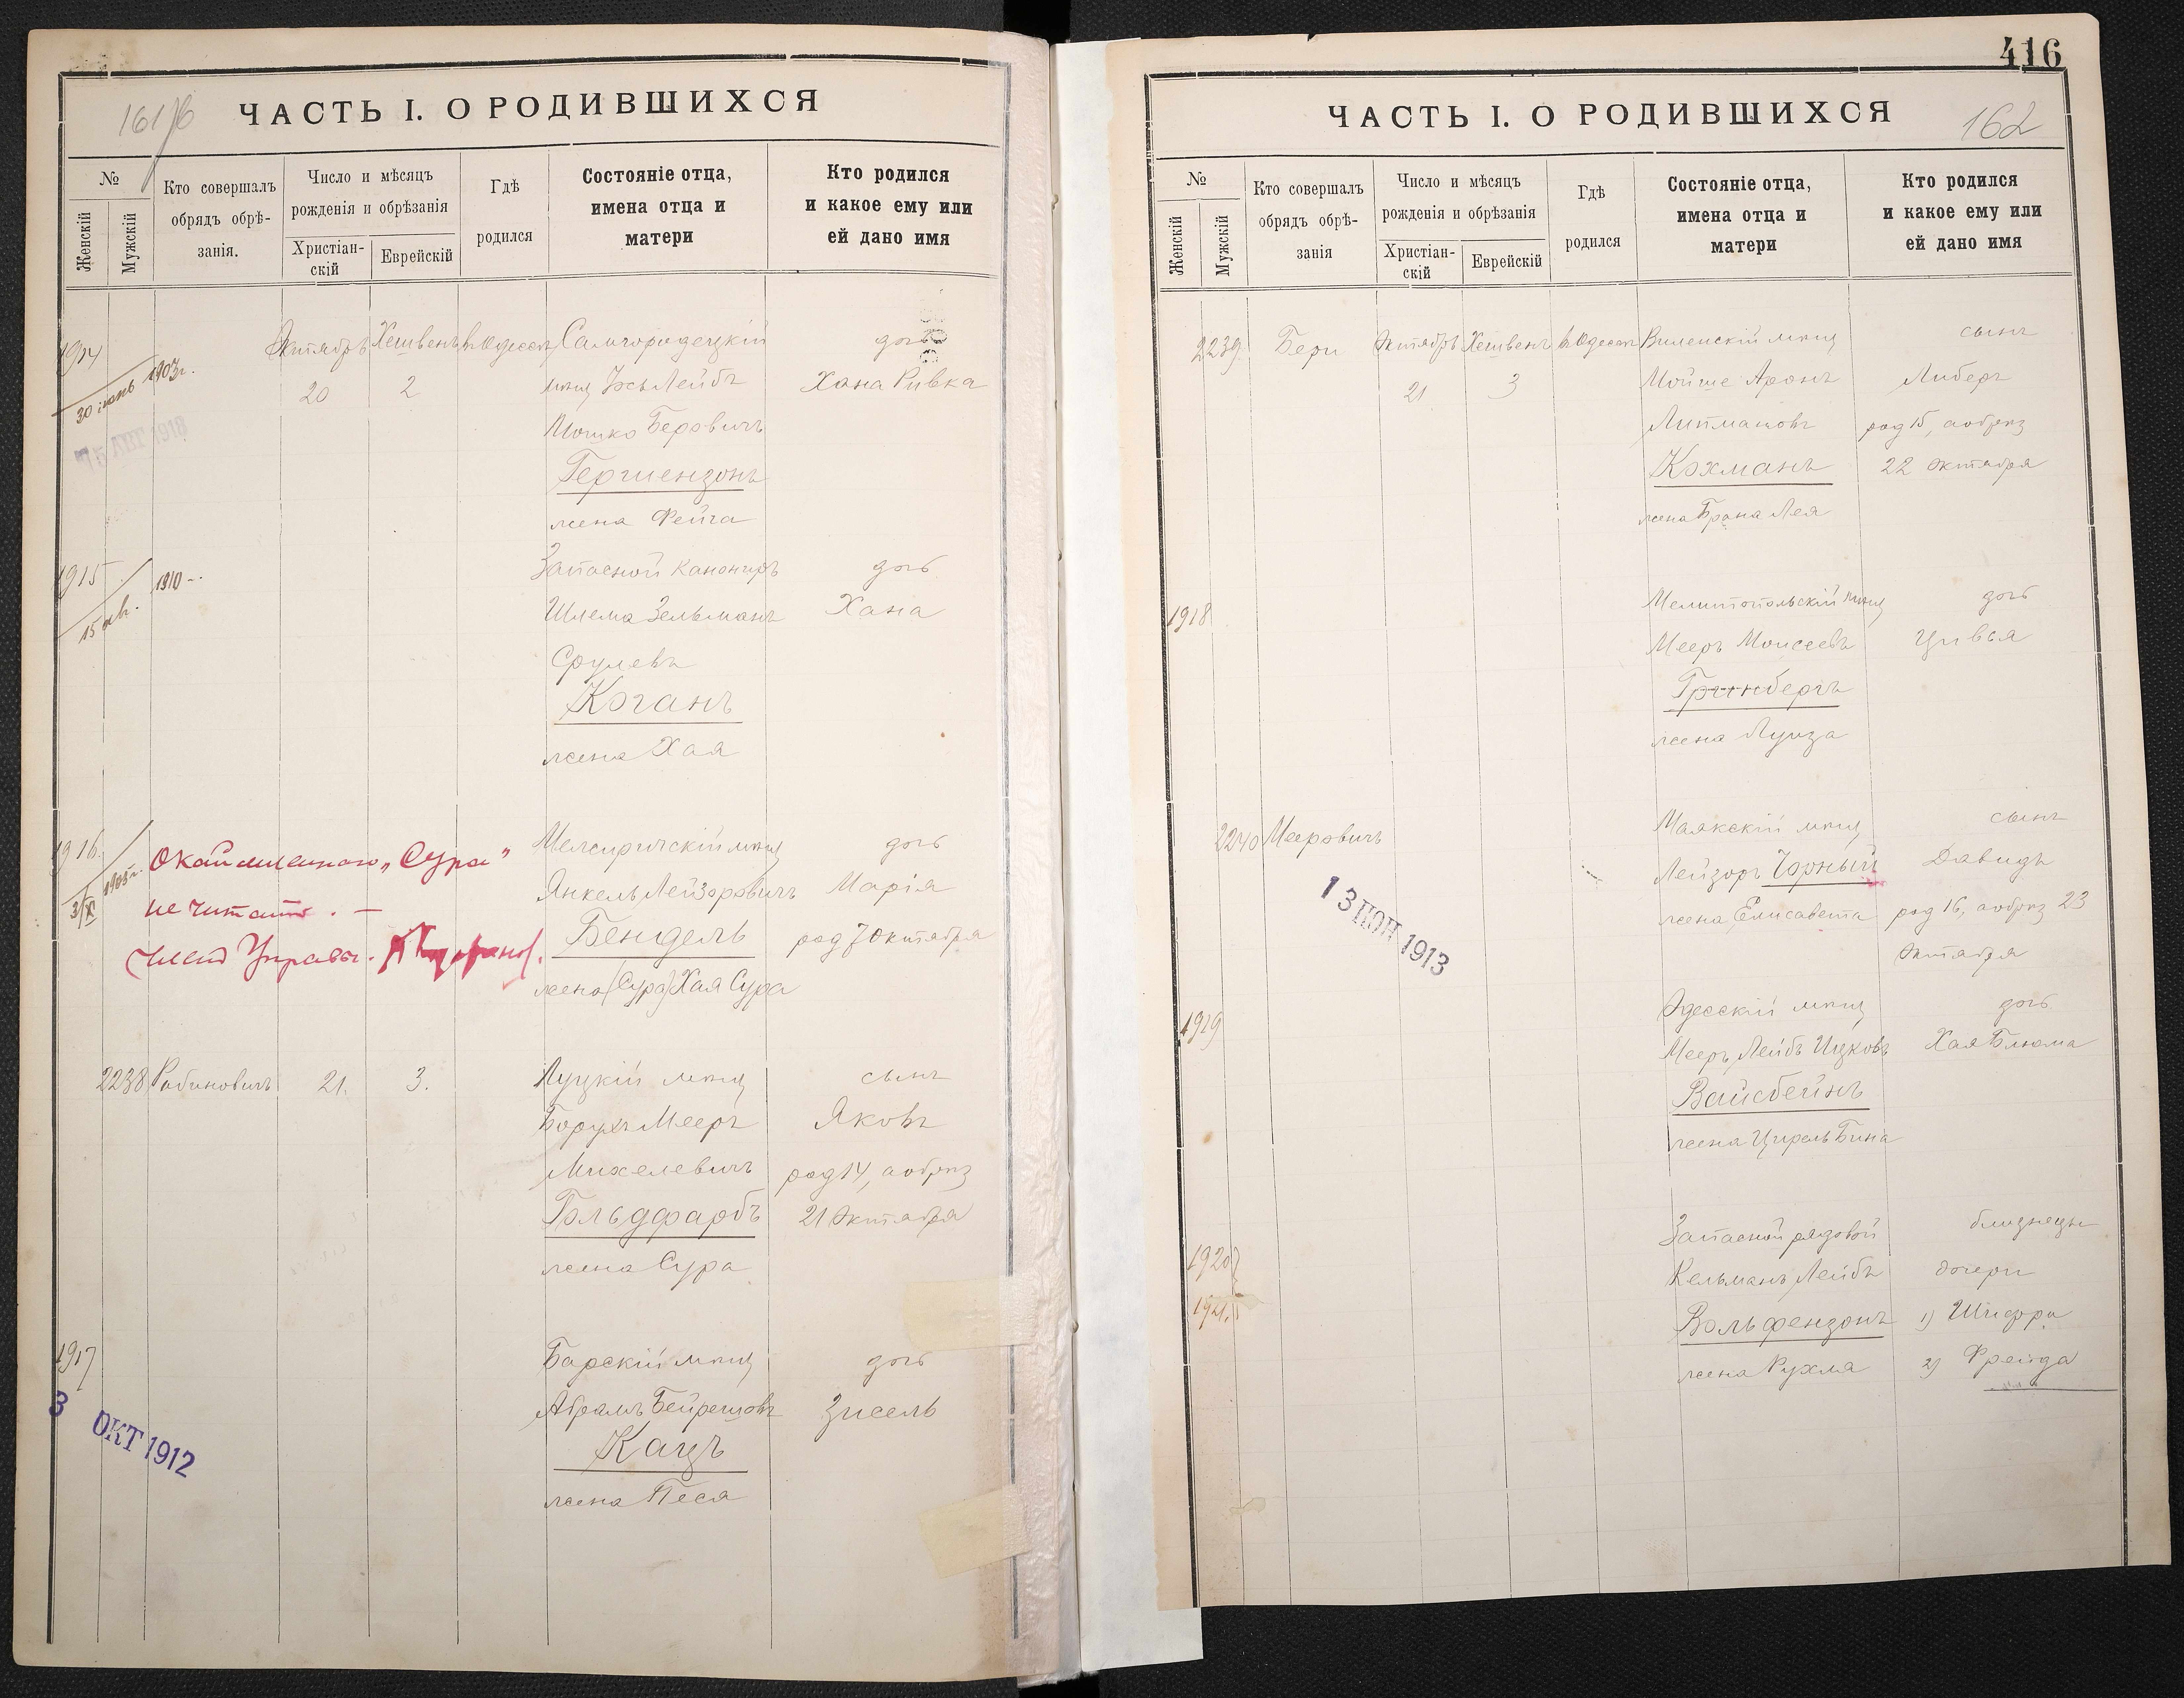 161/б
ЧАСТЬ I. О РОДИВШИХСЯ
№
Женскій
Мужскій
Кто совершалъ
обрядъ обрѣ-
занія.
Число и мѣсяцъ
рожденія и обрѣзанія
Христіан-
скій
Еврейскій
Гдѣ
родился
Состояніе отца,
имена отца и
матери
Кто родился
и какое ему или
ей дано имя
1914
30 іюнь 1903г.
Октябрь Хешвенъ в Одессѣ Самгородецкій дочь
20 2 мѣщ Іось Лейбъ Хана Ривка
Мошко Беровичъ
Гершензонъ
жена Фейга
1915
15 ав. 1910
Запасной канониръ дочь
Шлема Зельманъ Хана
Срулевъ
Коганъ
жена Хая
1916.
3/X 1903г.
Окаймленнаго „Сура"
не читать. —
Членъ Управы.
мѣщ дочь
Янкель Лейзоровичъ Марія
Бендель род 7 Октября
жена (Сура) Хая Сура
2238 Рабиновичъ 21. 3. Луцкій мѣщ сынъ
Борухъ Мееръ Яковъ
Михелевичъ род 14, а обрѣз
Гольдфарбъ 21 Октября
жена Сура
1917
3 ОКТ 1912
Барскій мѣщ дочь
Абрамъ Зисель
Кацъ
жена Песя
416
ЧАСТЬ I. О РОДИВШИХСЯ
162
№
Женскій
Мужскій
Кто совершалъ
обрядъ обрѣ-
занія
Число и мѣсяцъ
рожденія и обрѣзанія
Христіан-
скій
Еврейскій
Гдѣ
родился
Состояніе отца,
имена отца и
матери
Кто родился
и какое ему или
ей дано имя
2239. Бери Октябрь Хешвенъ в Одессѣ Виленскій мѣщ сынъ
21 3 Мойше Аронъ Либеръ
Липмановъ род 15, а обрѣз
Кохманъ 22 Октября
жена Брана Лея
1918 Мелитопольскій мѣщ дочь
Мееръ Моисеевъ Цивья
Гринбергъ
жена Луиза
2240 Мееровичъ Маякскій мѣщ сынъ
Лейзоръ Чорный Давидъ
жена Елисавета род 16, а обрѣз 23
Октября
13 ІЮН 1913
1919 Одесскій мѣщ дочь
Мееръ Лейбъ Ицковъ Хая Блюма
Вайсбейнъ
жена Цирель Бина
Запасной рядовой близнецы
1920 Кельманъ Лейбъ дочери
1921. Вольфензонъ 1) Шифра
жена Рухля 2) Фрейда